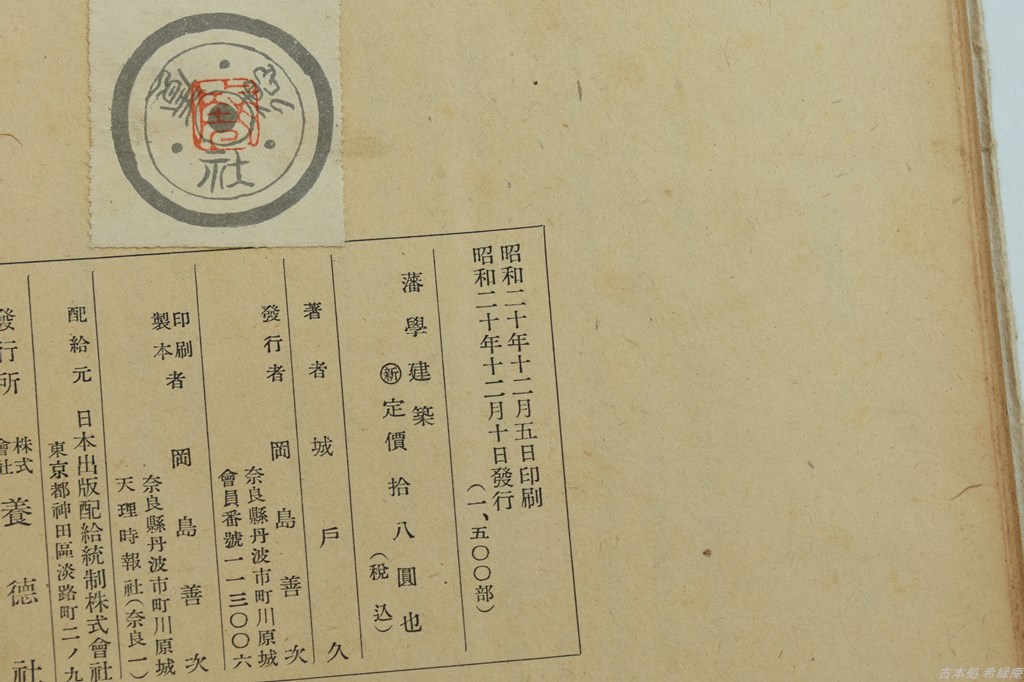 養德社
昭和二十年十二月五日印刷
昭和二十年十二月十日發行
(一、五〇〇部)
藩學建築
㊟定價拾八圓也
(税込)
著者 城戶久
發行者 岡島善次
奈良縣丹波市町川原城
會員番號一一三〇〇六
印刷
製本者 岡島善次
奈良縣丹波市町川原城
天理時報社(奈良一)
配給元 日本出版配給統制株式會社
東京都神田區淡路町二ノ九
發行所 株式
會社 養德社
古本処 希縁庵